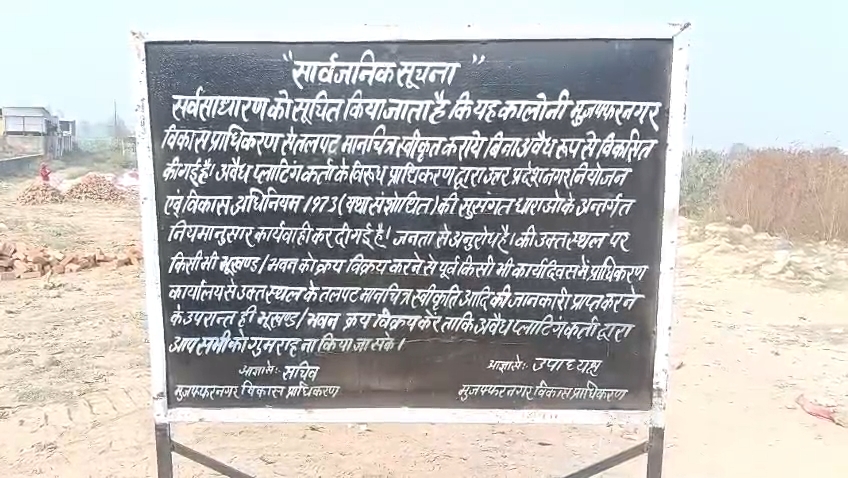 "सार्वजनिक सूचना"
सर्वसाधारण को सूचित किया जाता है कि यह कालोनी मुजफ्फरनगर
विकास प्राधिकरण से तलपट मानचित्र स्वीकृत कराये बिना अवैध रूप से विकसित
की गई है। अवैध प्लाटिंगकर्ता के विरूध प्राधिकरण द्वारा उत्तर प्रदेश नगर नियोजन
एवं विकास अधिनियम 1973 (यथा संशोधित) की सुसंगत धाराओ के अन्तर्गत
नियमानुसार कार्यवाही कर दी गई है। जनता से अनुरोध है। की उक्त स्थल पर
किसी भी भूखण्ड/भवन को क्रय विक्रय करने से पूर्व किसी भी कार्यदिवस में प्राधिकरण
कार्यालय से उक्त स्थल के तलपट मानचित्र स्वीकृति आदि की जानकारी प्राप्त करने
के उपरान्त ही भूखण्ड/भवन क्रय विक्रय करे ताकि अवैध प्लाटिंगकर्ता द्वारा
आप सभी को गुमराह ना किया जा सके।
आज्ञासेः सचिव आज्ञासेः उपाध्यक्ष
मुजफ्फरनगर विकास प्राधिकरण मुजफ्फरनगर विकास प्राधिकरण